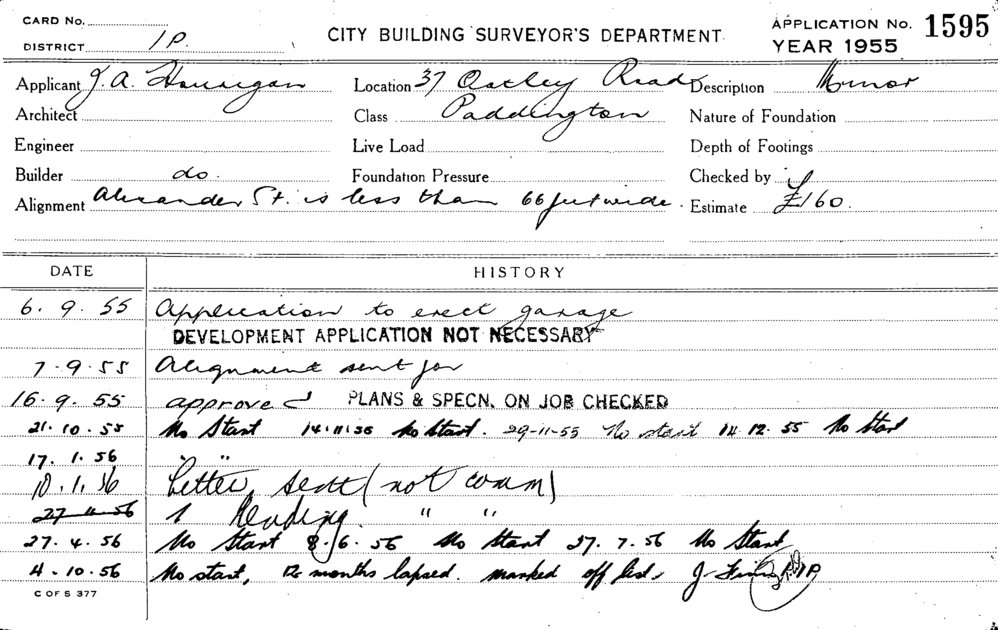 CARD No.
DISTRICT 1P.
CITY BUILDING SURVEYOR'S DEPARTMENT
APPLICATION No. 1595
YEAR 1955
Applicant J. A. Hourigan Location 37 Oatley Road Description Minor
Architect Class Paddington Nature of Foundation
Engineer Live Load Depth of Footings
Builder do. Foundation Pressure Checked by
Alignment Alexander St. is less than 66 feet wide. Estimate £160.
DATE HISTORY
6. 9. 55 Application to erect garage
DEVELOPMENT APPLICATION NOT NECESSARY
7-9-55 Alignment sent for
16. 9. 55 approved PLANS & SPECN. ON JOB CHECKED
21. 10. 55 No Start 14.11.55 No Start. 29-11-55 No start 14.12.55 No Start
17. 1. 56 " "
18. 1. 56 Letter sent (not comm)
27 4 56 Reading. " "
27. 4. 56 No Start 8.6.56 No Start 27. 7. 56 No Start
4. 10. 56 No start, 12 months lapsed. marked off list. J.
C OF S 377